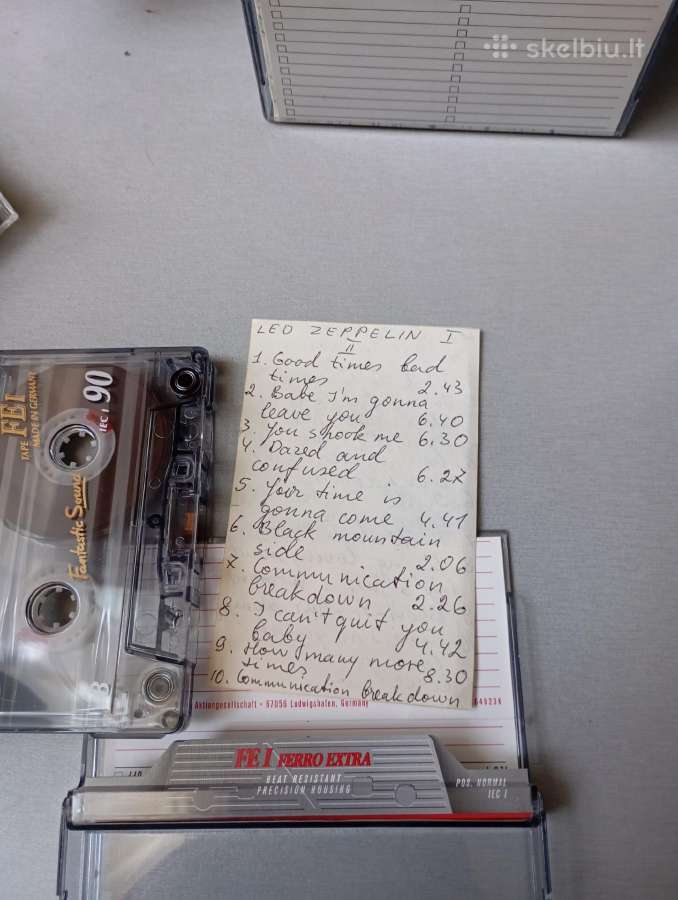 skelbiu.lt
LED ZEPPELIN I
II
1. Good times bad
times 2.43
2. Babe I'm gonna
leave you 6.40
3. You shook me 6.30
4. Dazed and
confused 6.27
5. Your time is
gonna come 4.41
6. Black mountain
side 2.06
7. Communication
breakdown 2.26
8. I can't quit you
baby 4.42
9. How many more
times 8.30
10. Communication breakdown
TAPE FE I 90
MADE IN GERMANY IEC I
Fantastic Sound
B
Aktiengesellschaft • 67056 Ludwigshafen, Germany
FE I FERRO EXTRA
HEAT RESISTANT
PRECISION HOUSING
POS. NORMAL
IEC I